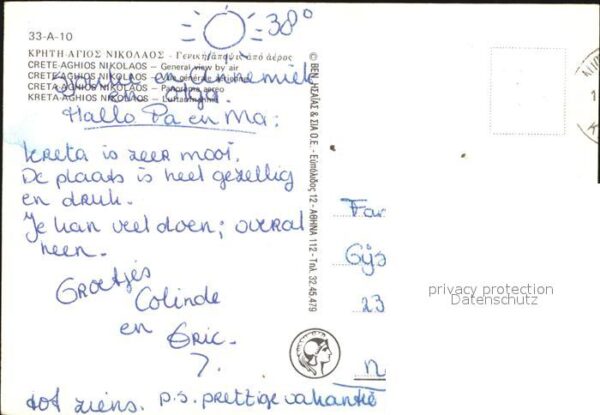 38°
33-A-10
ΚΡΗΤΗ-ΑΓΙΟΣ ΝΙΚΟΛΑΟΣ - Γενική ἄποψις ἀπό ἀέρος
CRETE-AGHIOS NIKOLAOS — General view by air
CRETE-AGHIOS NIKOLAOS — Vue générale aérienne
CRETA-AGHIOS NIKOLAOS — Panorama aereo
KRETA-AGHIOS NIKOLAOS — Luftaufnahme
en
en Olga.
Hallo Pa en Ma;
Kreta is zeer mooi.
De plaats is heel gezellig
en druk.
Je kan veel doen; overal
heen.
Groetjes
Colinde
en
Eric.
tot ziens. p.s. prettige vakantie
© ΒΕΝ. ΗΣΑΪΑΣ & ΣΙΑ Ο.Ε. - Εὐπόλιδος 12 - ΑΘΗΝΑ 112 - Τηλ. 32.45.479
Fam
Gijs
23
N
privacy protection
Datenschutz